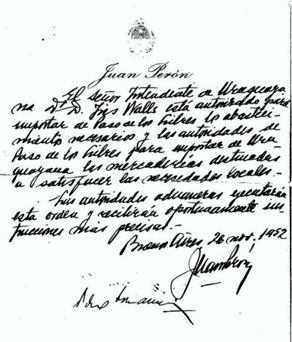 Juan Perón
El Señor Intendente de Uruguaya
na Dr. D. Iris Valls está autorizado para
importar de Paso de los Libres los abasteci-
miento necesarios y las autoridades de
Paso de los Libres para importar de Uru
guayana las mercaderías destinadas
a satisfacer las necesidades locales.-
Las autoridades aduaneras ejecutarán
esta orden y recibirán oportunamente ins
trucciones más precisas.-
Buenos Aires, 26 nov. 1952